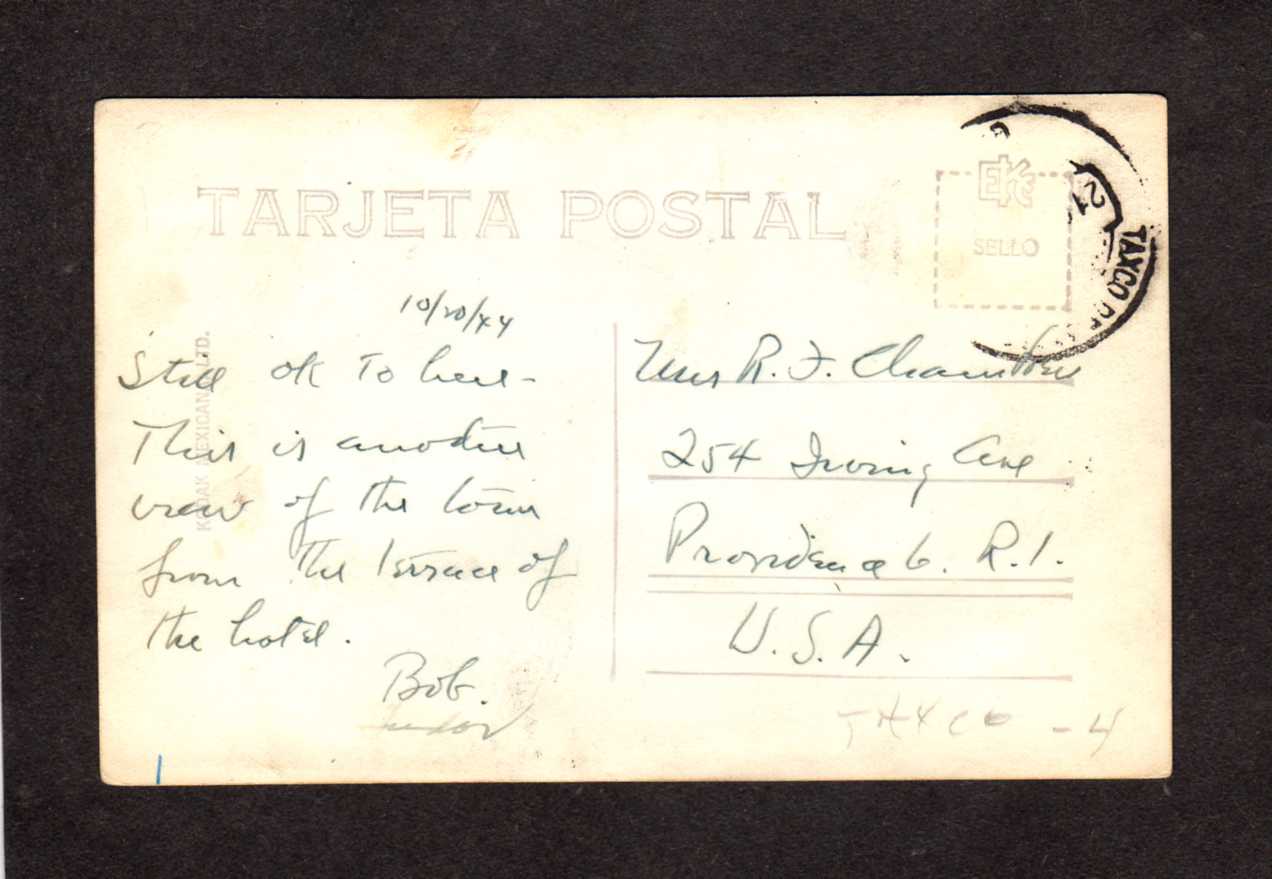 TARJETA POSTAL
EK
SELLO
21
TAXCO DE
KODAK MEXICANA, LTD.
10/20/44
Still ok to here -
This is another
view of the town
from the terrace of
the hotel.
Bob.
Mrs R. F. Chambers
254 Irving Ave
Providence 6. R.I.
U.S.A.
TAXCO - 4